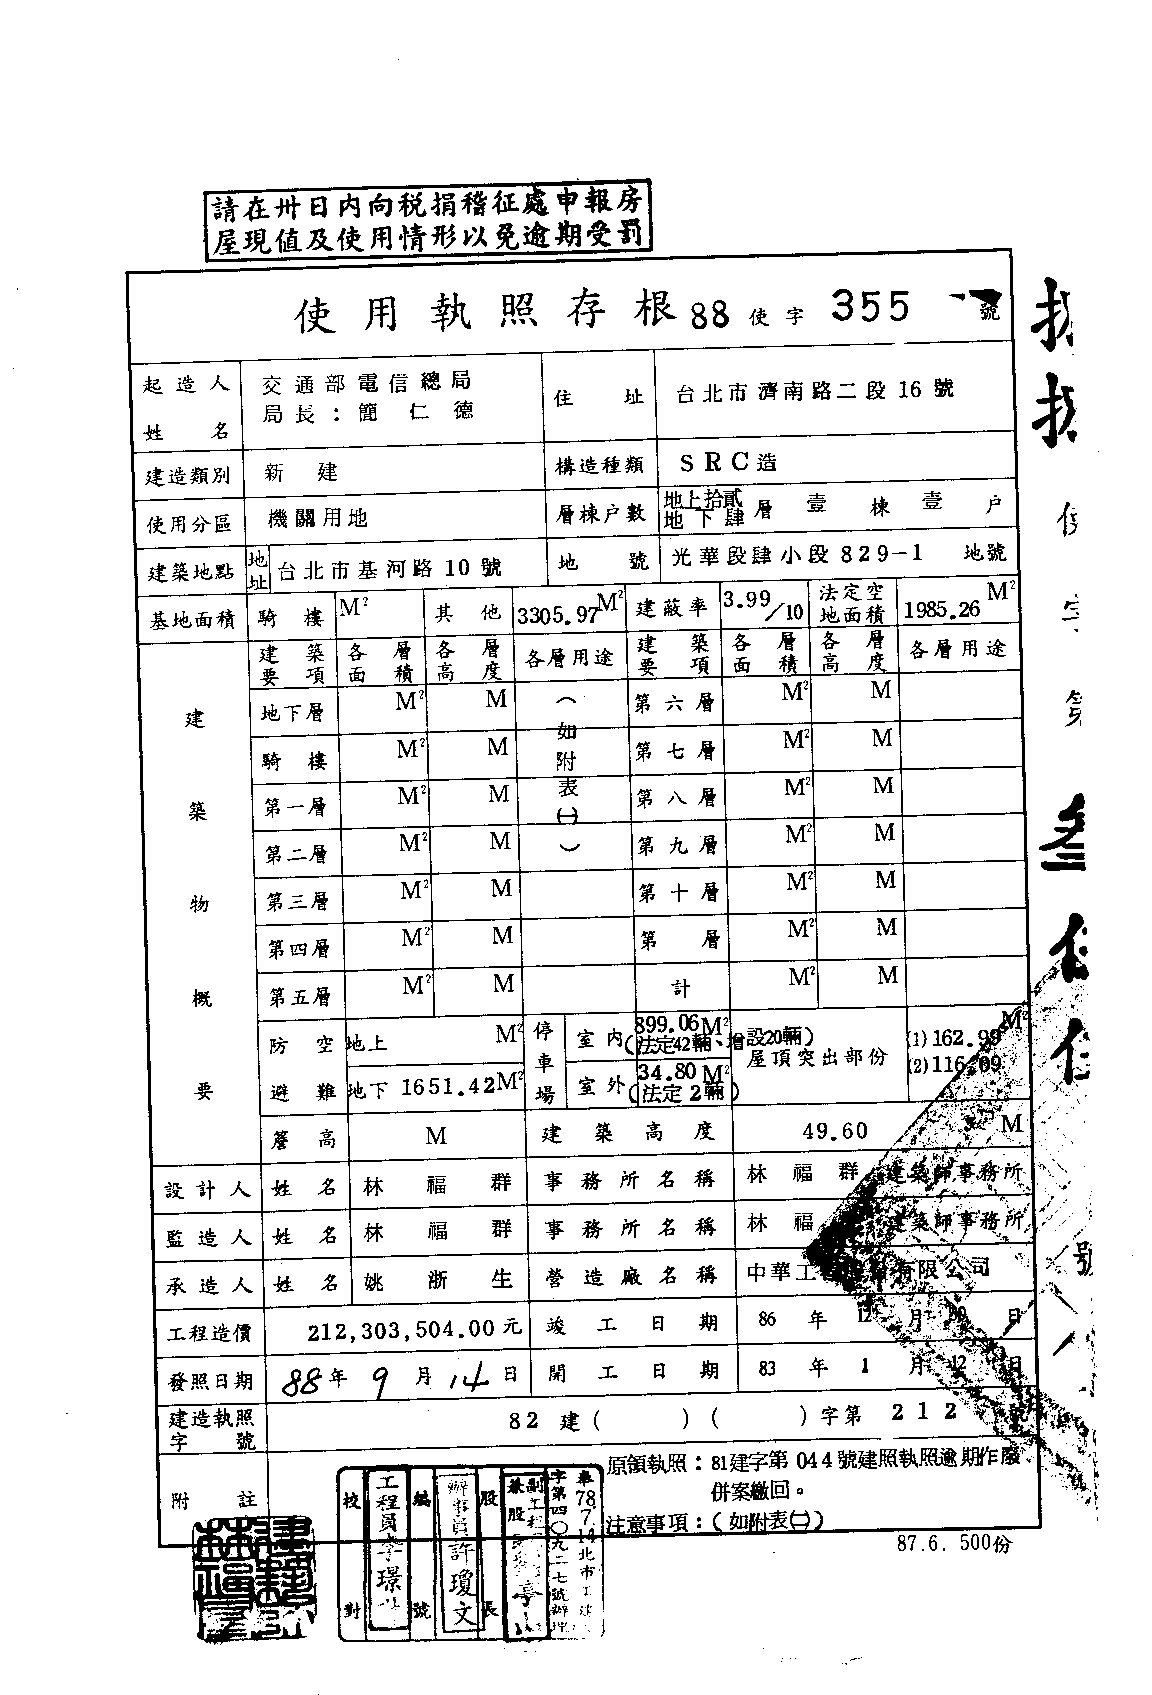 請在卅日內向稅捐稽征處申報房
屋現值及使用情形以免逾期受罰
使用執照存根 88 使字 355 號
起造人姓名 交通部電信總局 局長：簡仁德 住址 台北市濟南路二段16號
建造類別 新建 構造種類 SRC造
使用分區 機關用地 層棟戶數 地上拾貳 地下肆 層壹棟壹戶
建築地點 地址 台北市基河路10號 地號 光華段肆小段829-1 地號
基地面積 騎樓 M² 其他 3305.97 M² 建蔽率 3.99/10 法定空地面積 1985.26 M²
建築物概要
建築要項 各層面積 各層高度 各層用途 建築要項 各層面積 各層高度 各層用途
地下層 M² M 第六層 M² M
騎樓 M² M 第七層 M² M
第一層 M² M 第八層 M² M
第二層 M² M 第九層 M² M
第三層 M² M 第十層 M² M
第四層 M² M 第 層 M² M
第五層 M² M 計 M² M
（如附表㈠）
防空避難 地上 M² 停車場 室內 899.06 M² (法定42輛、增設20輛) 屋頂突出部份 (1)162.99 M²
地下 1651.42 M² 室外 34.80 M² (法定2輛) (2)116.09
簷高 M 建築高度 49.60 M
設計人 姓名 林福群 事務所名稱 林福群建築師事務所
監造人 姓名 林福群 事務所名稱 林福 建築師事務所
承造人 姓名 姚浙生 營造廠名稱 中華工 有限公司
工程造價 212,303,504.00元 竣工日期 86年12月 日
發照日期 88年9月14日 開工日期 83年1月12日
建造執照字號 82建( )( )字第212
附註 原領執照：81建字第044號建照執照逾期作廢
併案繳回。
注意事項：(如附表㈡)
87.6. 500份
校對 工程員李璟
編號 辦事員許瓊文
股長 副工程 兼股
奉78.7.14北市工建
字第四〇九二七號辦理
使
字
第
叁
號